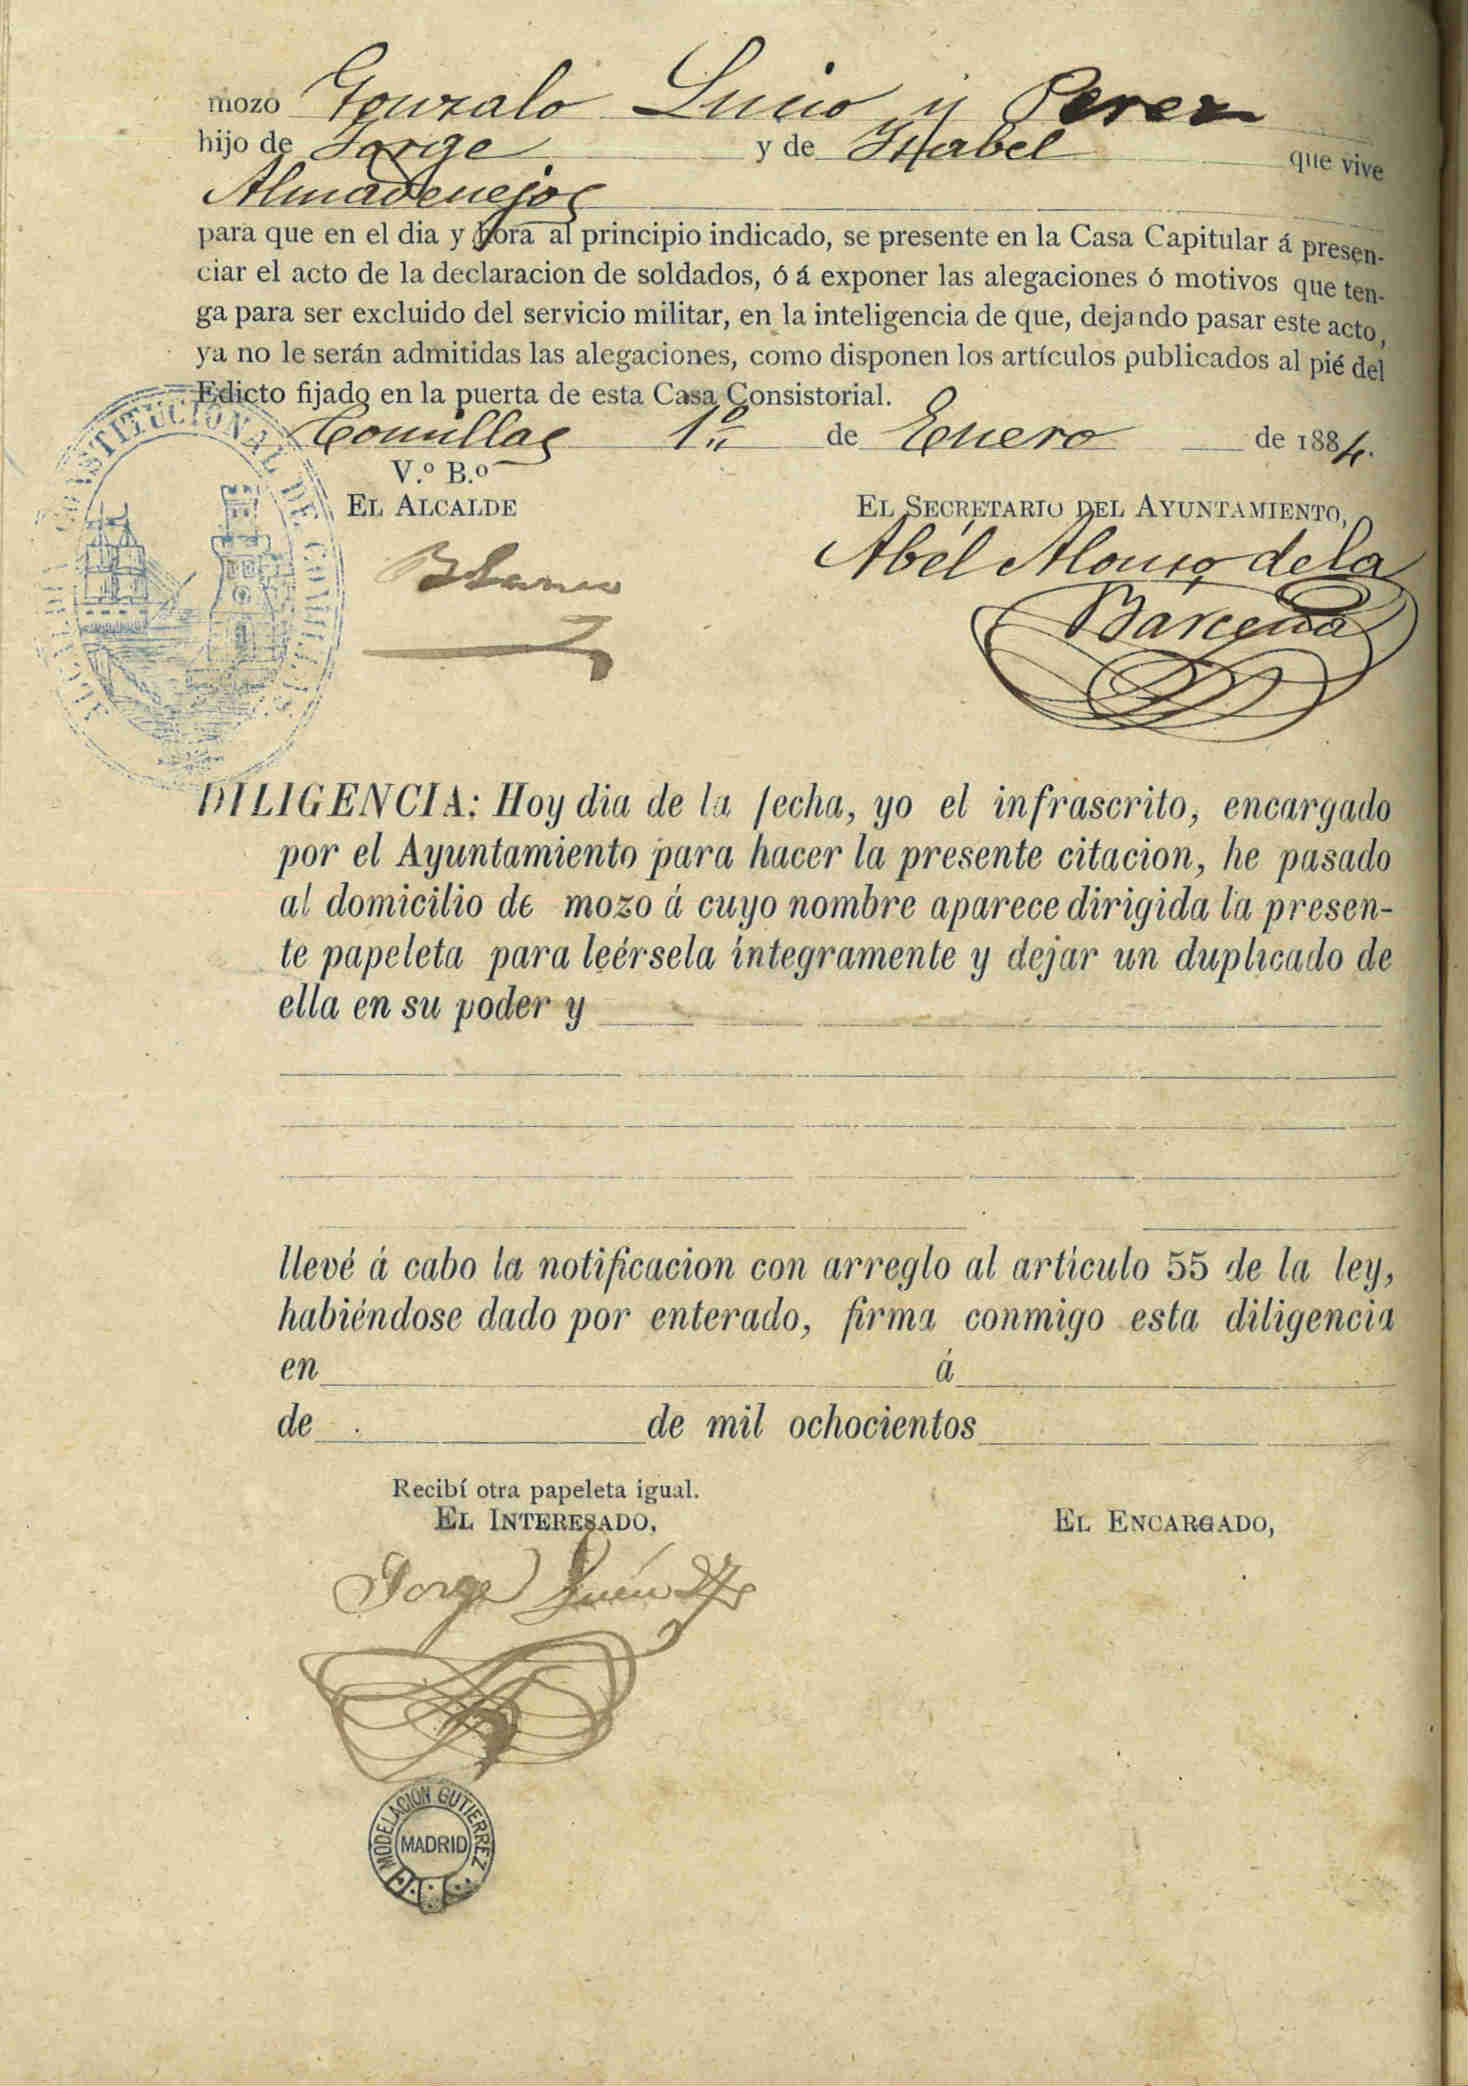 mozo Gonzalo Lucio y Perez
hijo de Jorge y de Ysabel que vive
Almadenejos
para que en el dia y hora al principio indicado, se presente en la Casa Capitular á presen-
ciar el acto de la declaracion de soldados, ó á exponer las alegaciones ó motivos que ten-
ga para ser excluido del servicio militar, en la inteligencia de que, dejando pasar este acto,
ya no le serán admitidas las alegaciones, como disponen los artículos publicados al pié del
Edicto fijado en la puerta de esta Casa Consistorial.
Comillas 1º de Enero de 1884.
V.º B.º
EL ALCALDE
EL SECRETARIO DEL AYUNTAMIENTO,
Blanco
Abél Alonso de la
Bárcena
ALCALDIA CONSTITUCIONAL DE COMILLAS.
DILIGENCIA: Hoy dia de la fecha, yo el infrascrito, encargado
por el Ayuntamiento para hacer la presente citacion, he pasado
al domicilio de mozo á cuyo nombre aparece dirigida la presen-
te papeleta para leérsela íntegramente y dejar un duplicado de
ella en su poder y
llevé á cabo la notificacion con arreglo al artículo 55 de la ley,
habiéndose dado por enterado, firma conmigo esta diligencia
en á
de de mil ochocientos
Recibí otra papeleta igual.
EL INTERESADO,
EL ENCARGADO,
Jorge Lucio
MODELACION GUTIERREZ
MADRID